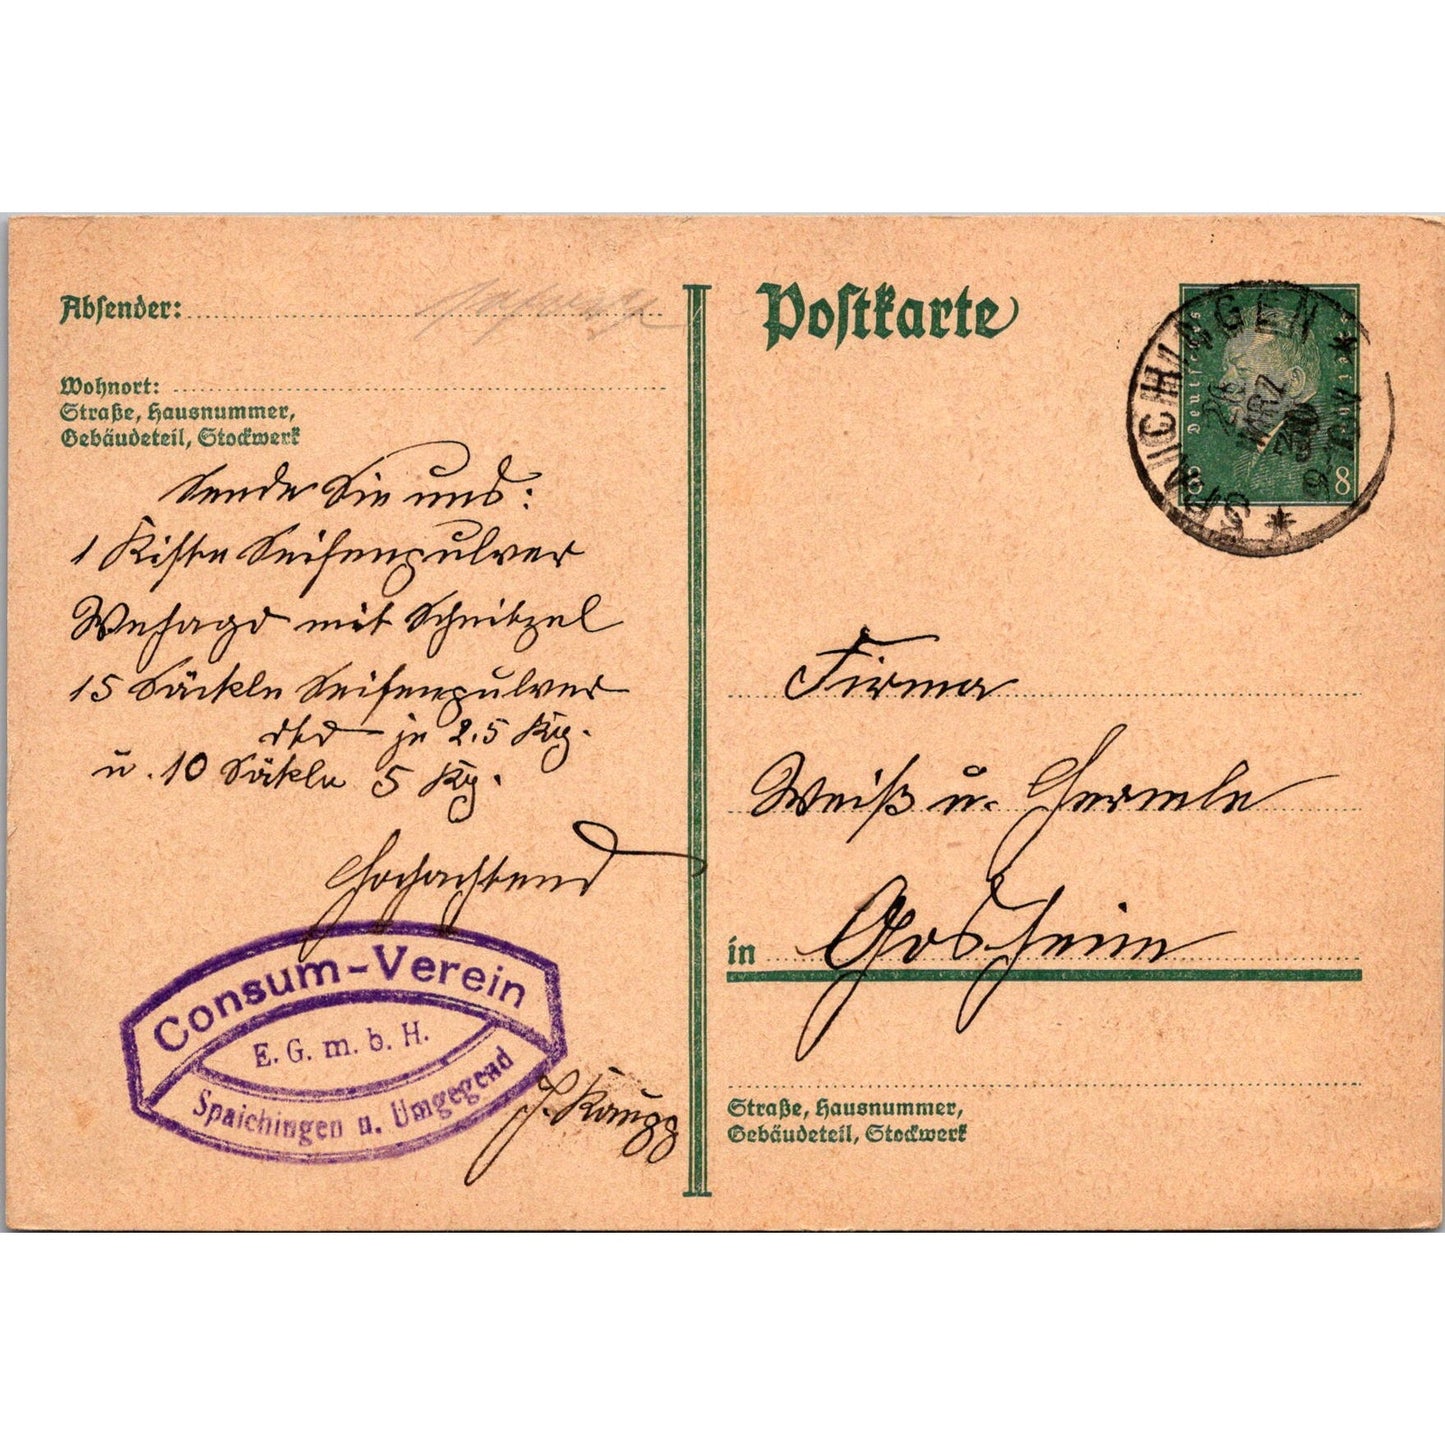 Absender:
Wohnort:
Straße, Hausnummer,
Gebäudeteil, Stockwerk
Sende Sie uns:
1 Kiste Seifenpulver
mit Schnitzel
15 Säckeln Seifenpulver
je 2.5 Kg.
u. 10 Säkeln 5 Kg.
Hochachtend
Consum-Verein
E. G. m. b. H.
Spaichingen u. Umgegend
J. Kaugg
Postkarte
Deutsches Reich
8 8
SPAICHINGEN
26 MRZ 30
Firma
Weiß u. Hermle
in Gosheim
Straße, Hausnummer,
Gebäudeteil, Stockwerk